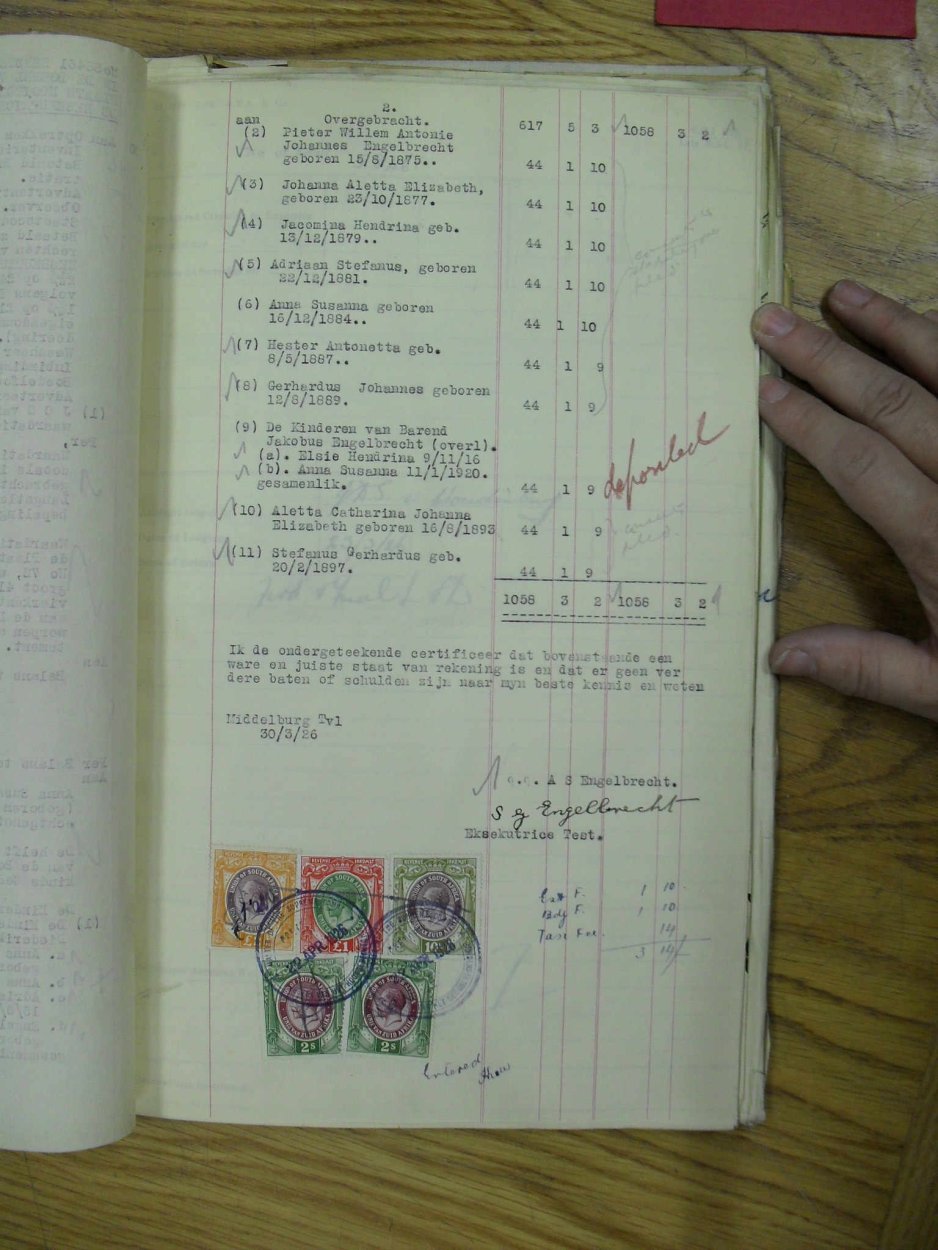 2.
aan Overgebracht. 617 5 3 1058 3 2
(2) Pieter Willem Antonie
Johannes Engelbrecht
geboren 15/8/1875.. 44 1 10
(3) Johanna Aletta Elizabeth,
geboren 23/10/1877. 44 1 10
(4) Jacomina Hendrina geb.
13/12/1879.. 44 1 10
(5) Adriaan Stefanus, geboren
22/12/1881. 44 1 10
(6) Anna Susanna geboren
16/12/1884.. 44 1 10
(7) Hester Antonetta geb.
8/5/1887.. 44 1 9
(8) Gerhardus Johannes geboren
12/8/1889. 44 1 9
(9) De Kinderen van Barend
Jakobus Engelbrecht (overl).
(a). Elsie Hendrina 9/11/16
(b). Anna Susanna 11/1/1920.
gesamenlik. 44 1 9
Deposited
(10) Aletta Catharina Johanna
Elizabeth geboren 16/8/1893 44 1 9
(11) Stefanus Gerhardus geb.
20/2/1897. 44 1 9
1058 3 2 1058 3 2
Ik de ondergeteekende certificeer dat bovenstaande een
ware en juiste staat van rekening is en dat er geen ver
dere baten of schulden zijn naar myn beste kennis en weten
Middelburg Tvl
30/3/26
A S Engelbrecht.
Engelbrecht
Eksekutrice Test.
REVENUE INKOMST
UNION OF SOUTH AFRICA
£1
10s
2s
2s
APR 1926
1 10
1 10
14
3 14
Entered